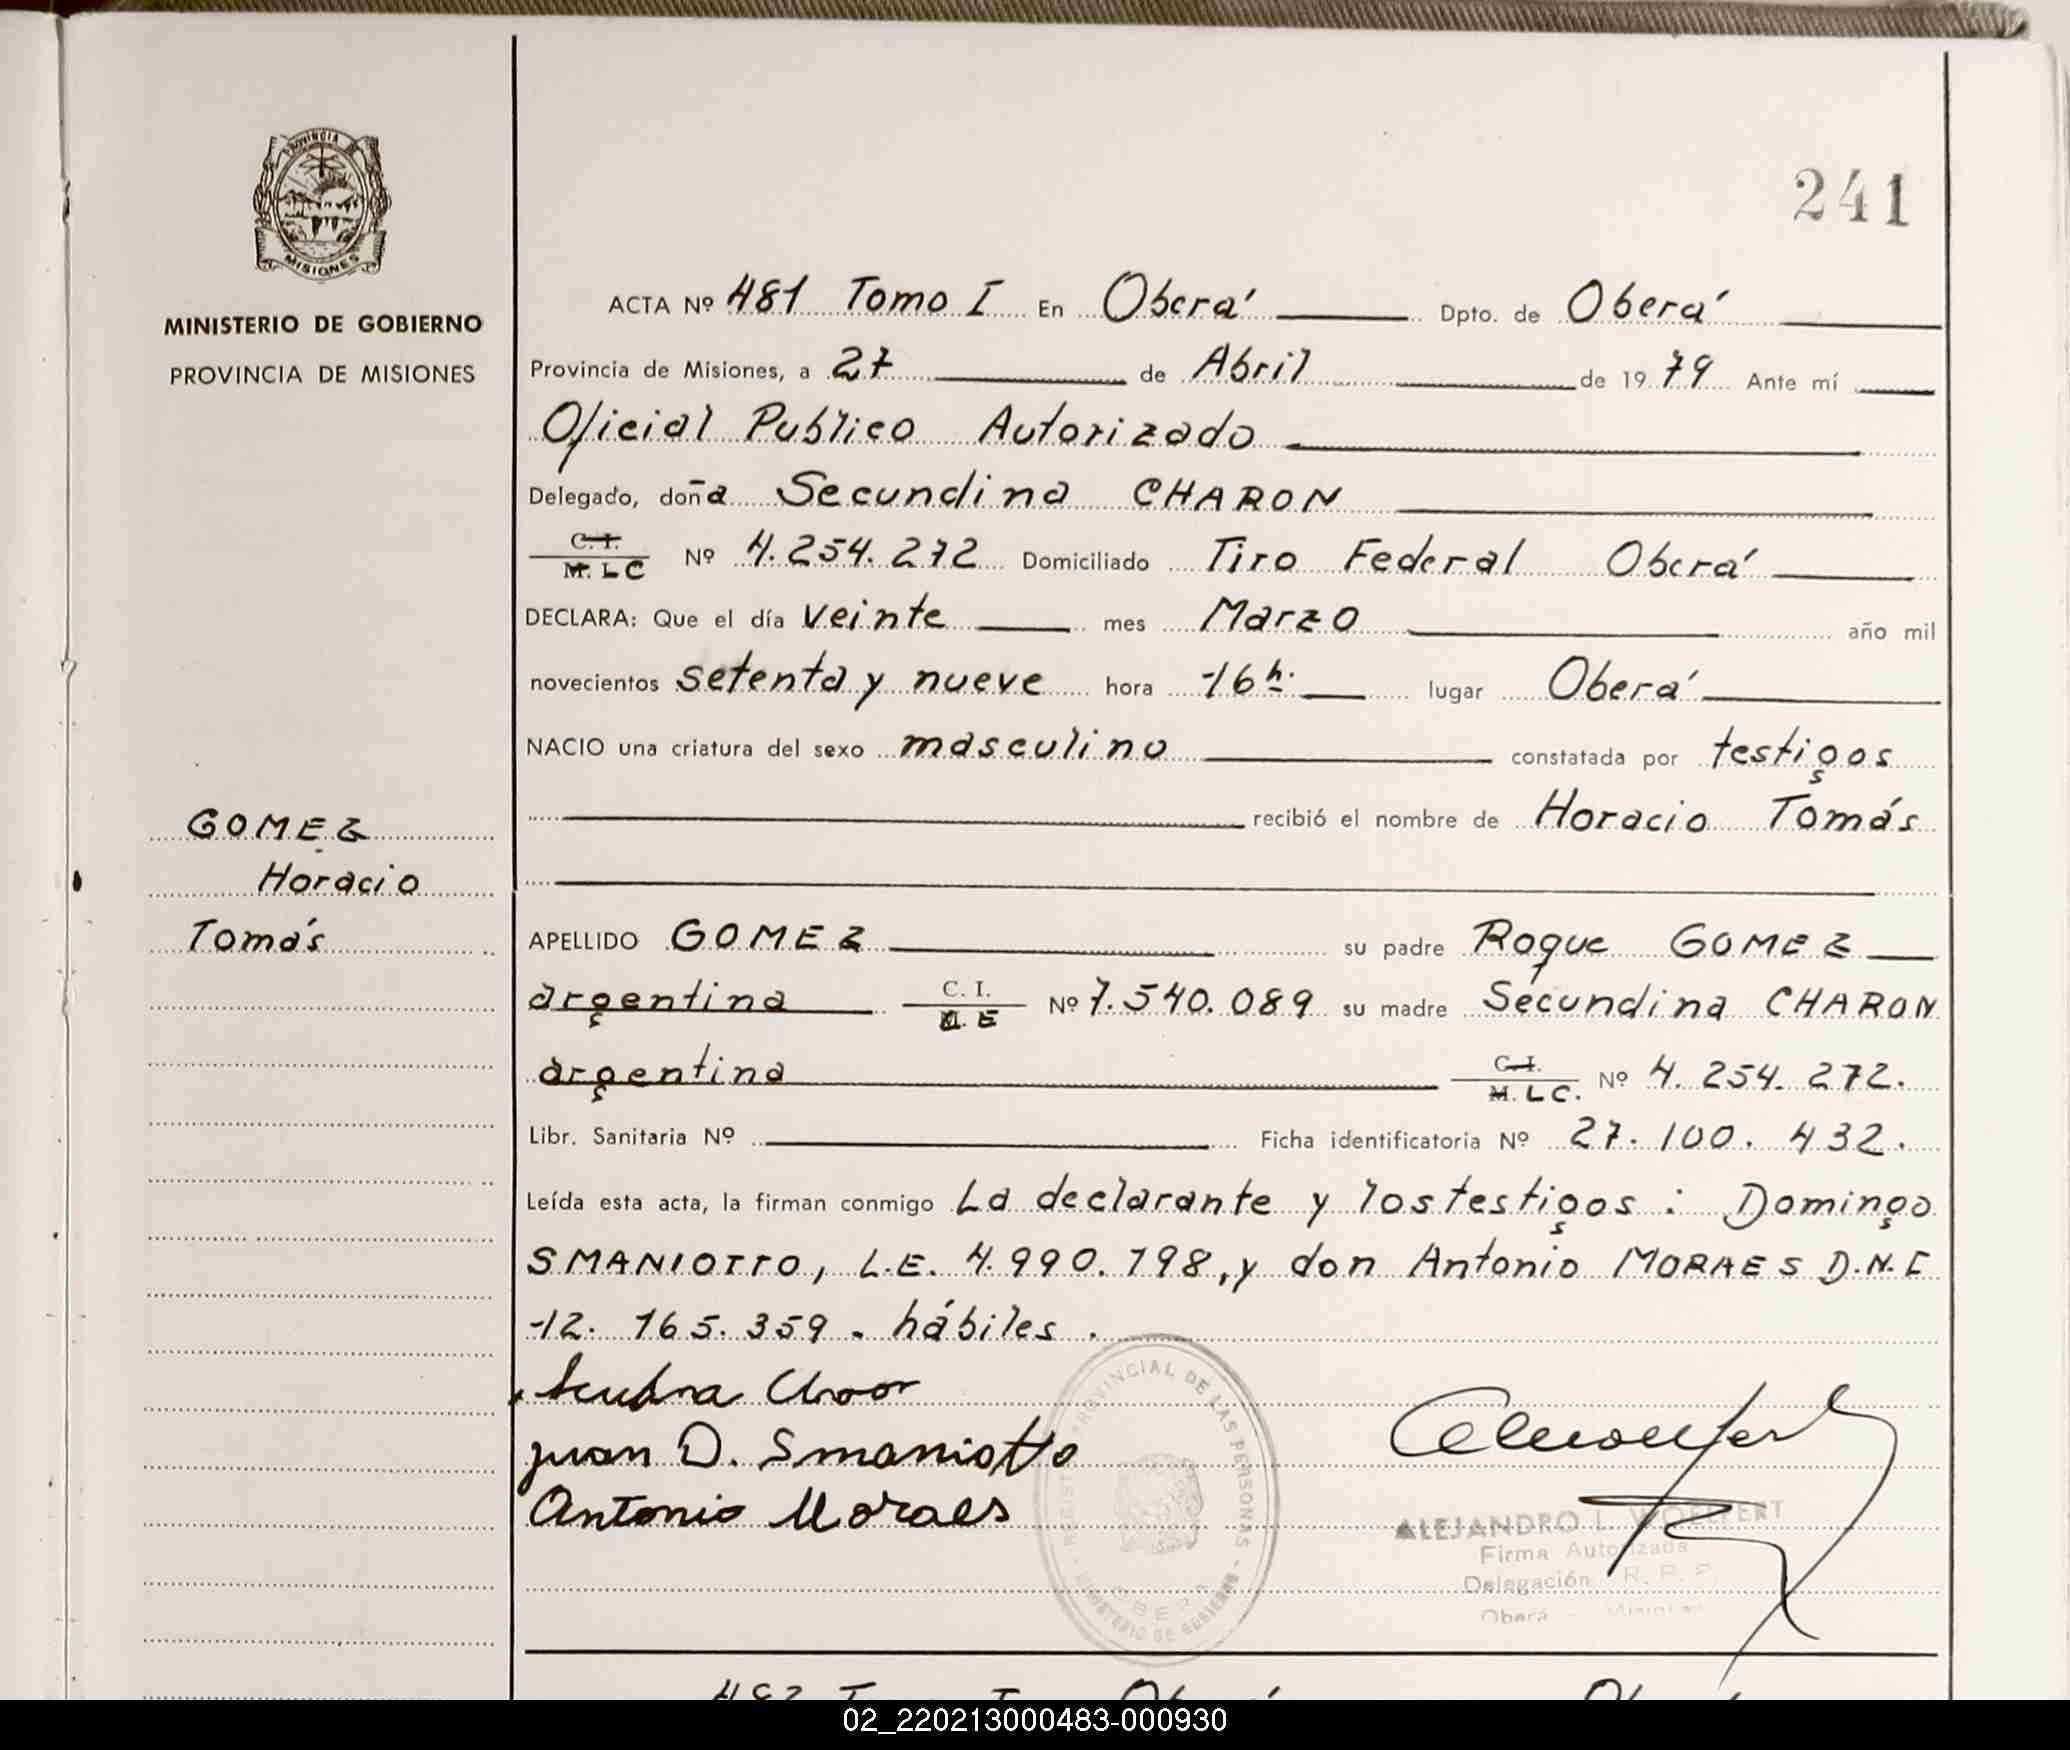 PROVINCIA DE
MISIONES
MINISTERIO DE GOBIERNO
PROVINCIA DE MISIONES
241
ACTA Nº 481 Tomo I En Oberá Dpto. de Oberá
Provincia de Misiones, a 27 de Abril de 1979 Ante mí
Oficial Publico Autorizado
Delegado, doña Secundina CHARON
C. I.
M. LC Nº 4.254.272 Domiciliado Tiro Federal Oberá
DECLARA: Que el día veinte mes Marzo año mil
novecientos setenta y nueve hora 16 h. lugar Oberá
NACIO una criatura del sexo masculino constatada por testigos
recibió el nombre de Horacio Tomás
GOMEZ
Horacio
Tomás
APELLIDO GOMEZ su padre Roque GOMEZ
argentina C. I. M. E Nº 7.540.089 su madre Secundina CHARON
argentina C. I. M. LC. Nº 4.254.272.
Libr. Sanitaria Nº Ficha identificatoria Nº 27.100.432.
Leída esta acta, la firman conmigo La declarante y los testigos: Domingo
SMANIOTTO, L.E. 4.990.798, y don Antonio MORAES D.N.I
12.165.359. hábiles.
juan D. Smaniotto
Antonio Moraes
PROVINCIAL DE LAS PERSONAS
MINISTERIO DE GOBIERNO
OBERA
ALEJANDRO L. WOELFERT
Firma Autorizada
Delegación R. P. P.
Oberá - Misiones
02_220213000483-000930